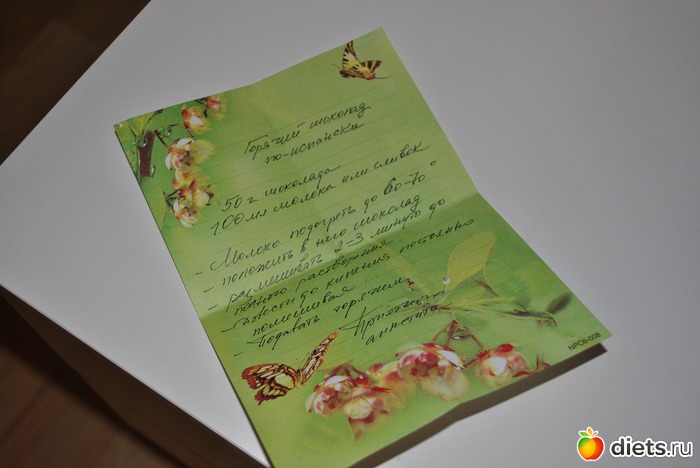 Горячий шоколад
по-испански
50 г шоколада
100 мл молока или сливок
- Молоко подогреть до 60-70°
- положить в него шоколад
- размешивать 2-3 минуты до
полного растворения
- Довести до кипения постоянно
помешивая...
- Подавать горячим.
Приятного
аппетита
NPC6-008
diets.ru